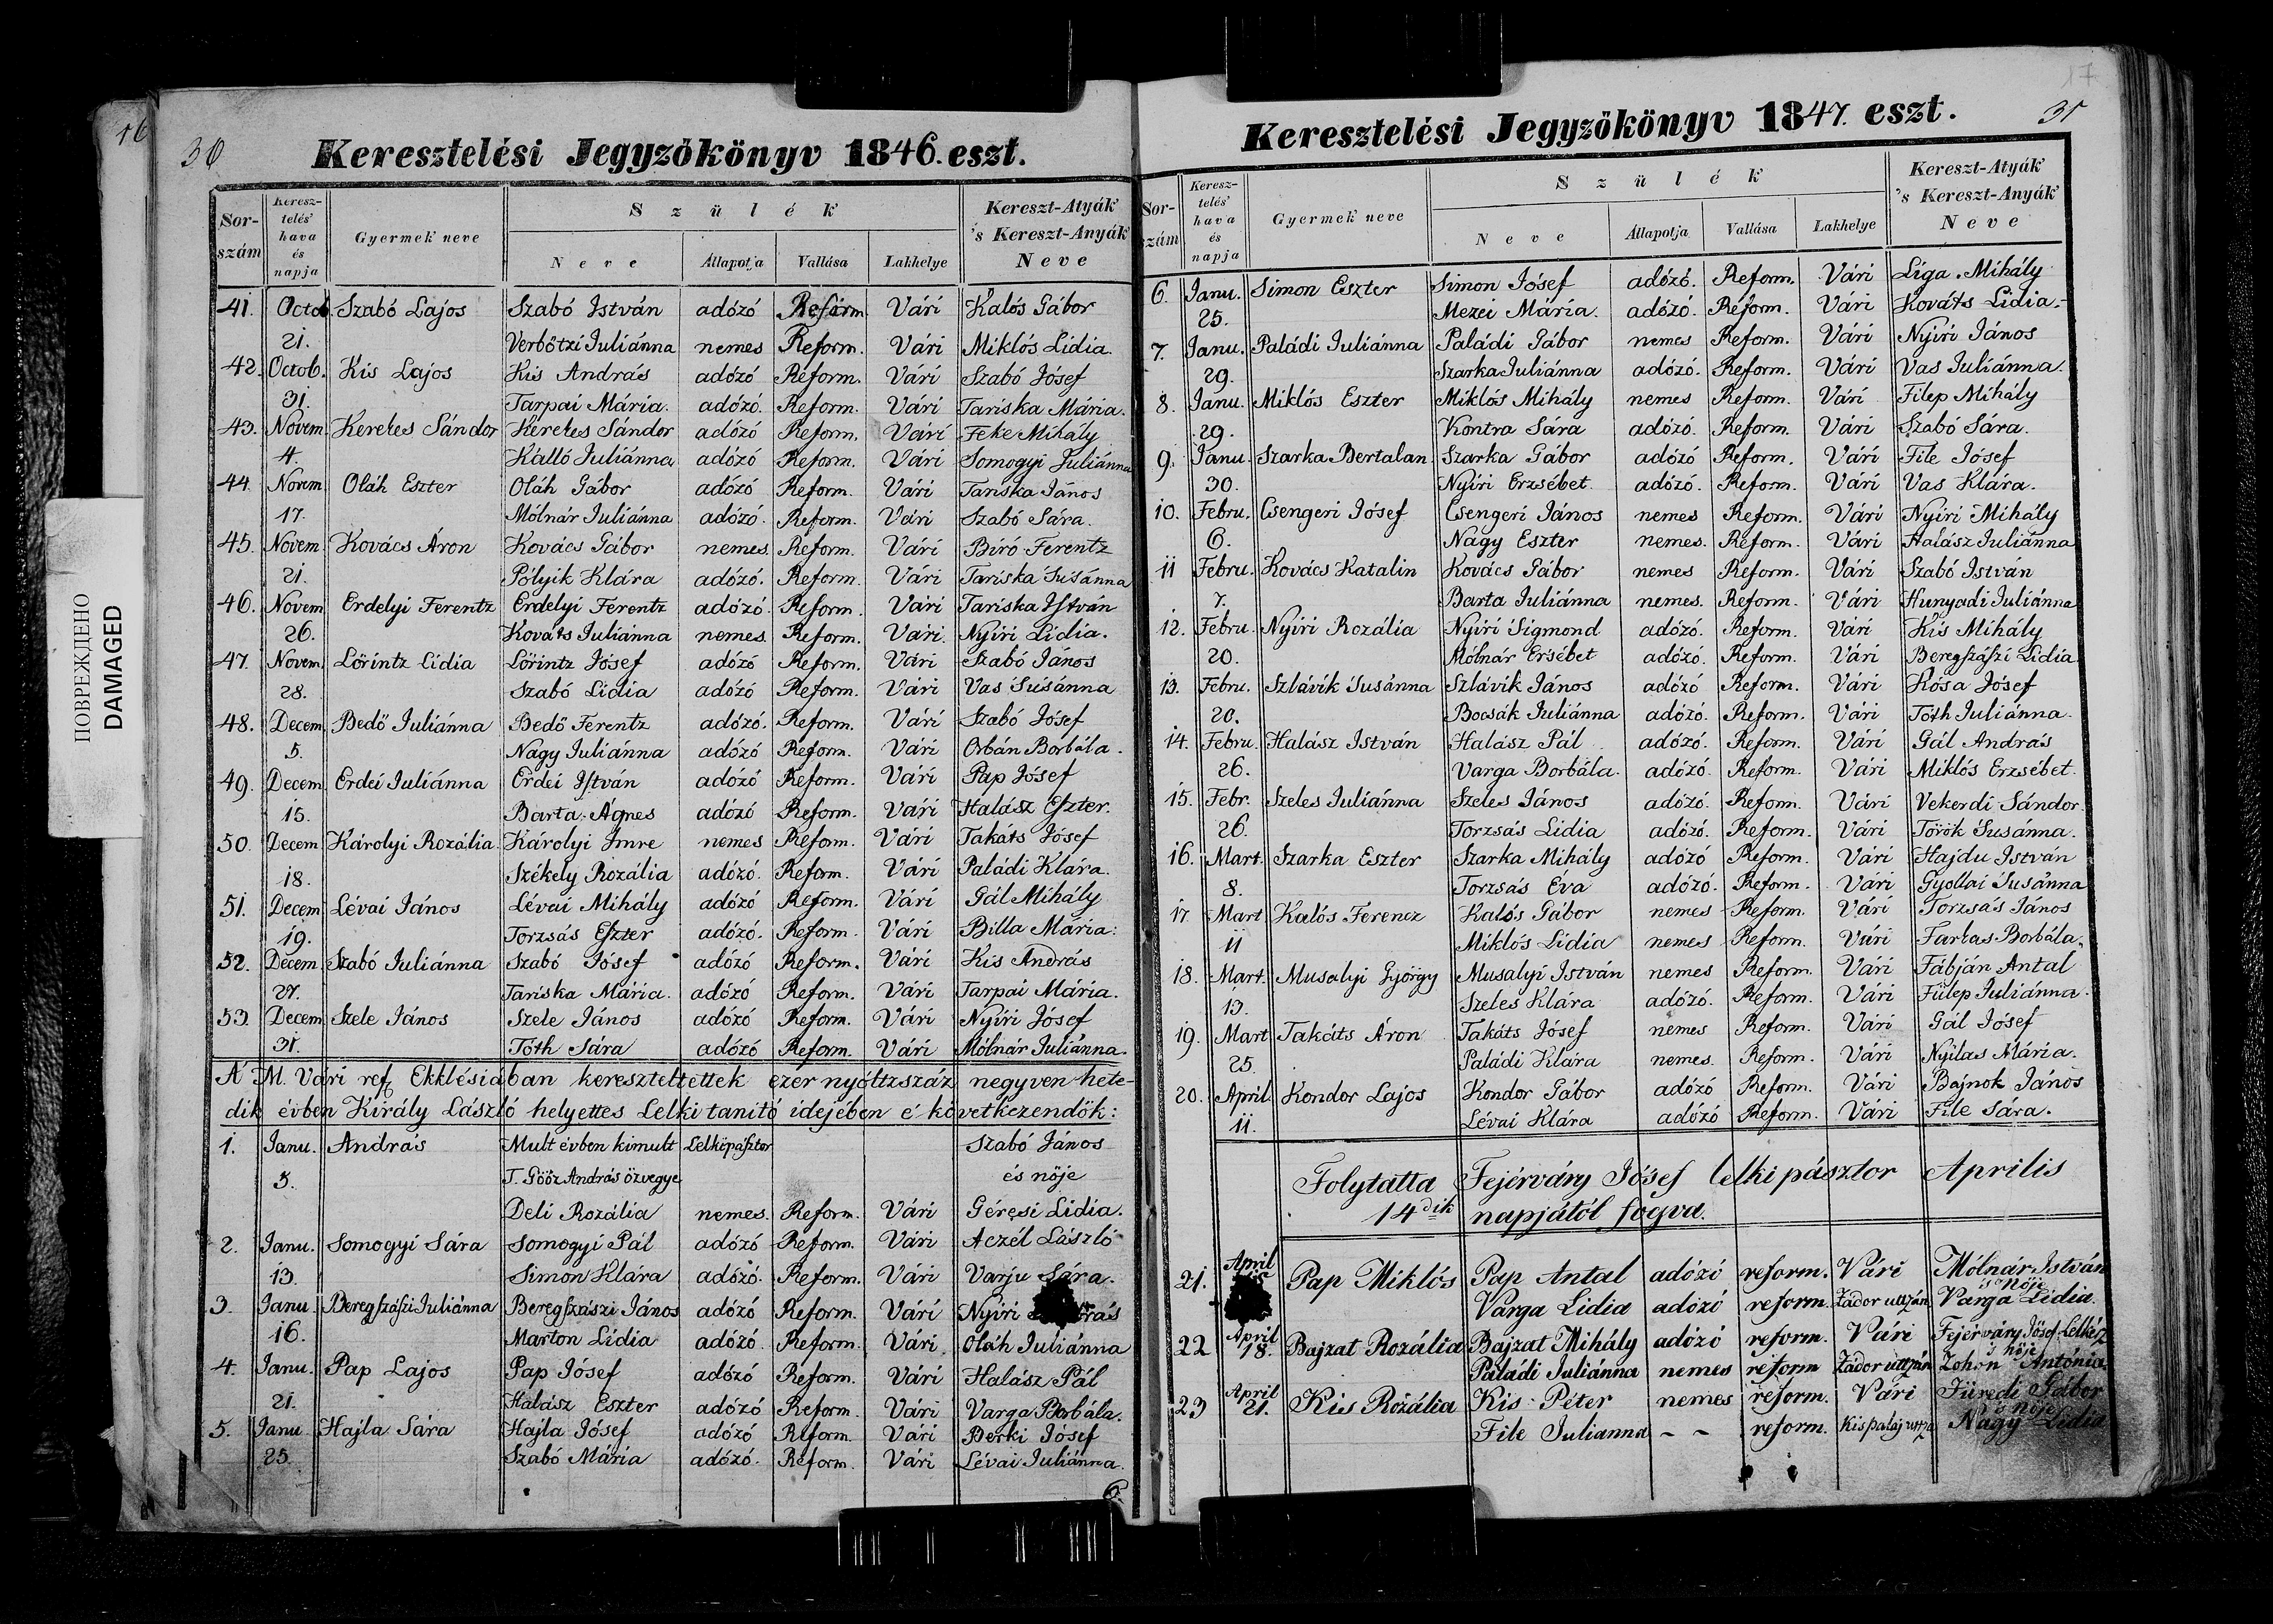 16
30
Keresztelési Jegyzőkönyv 1846. eszt.
Sor-szám Keresz-telés' hava és napja Gyermek neve Szülék Kereszt-Atyák 's Kereszt-Anyák Neve
Neve Állapotja Vallása Lakhelye
41. Octob Szabó Lajos Szabó István adózó Reform. Vári Kalós Gábor
21. Verbőtzi Juliánna nemes Reform. Vári Miklós Lidia.
42. Octob. Kis Lajos Kis András adózó Reform. Vári Szabó Jósef
31. Tarpai Mária. adózó. Reform. Vári Tariska Mária.
43. Novem Keretes Sándor Keretes Sándor adózó Reform. Vári Feke Mihály
4. Kálló Juliánna adózó Reform. Vári Somogyi Juliánna
44. Novem Oláh Eszter Oláh Gábor adózó Reform. Vári Tariska János
17. Mólnár Juliánna adózó. Reform. Vári Szabó Sára.
45. Novem Kovács Áron Kovács Gábor nemes. Reform. Vári Biró Ferentz
21. Pólyik Klára adózó. Reform. Vári Tariska Susánna
46. Novem Erdelyi Ferentz Erdelyi Ferentz adózó. Reform. Vári Tariska István
26. Kováts Juliánna nemes. Reform. Vári. Nyiri Lidia.
47. Novem. Lőrintz Lidia Lőrintz Jósef adózó Reform. Vári Szabó János
28. Szabó Lidia adózó Reform. Vári Vas Susánna
48. Decem. Bedő Juliánna Bedő Ferentz adózó. Reform. Vári Szabó Jósef
5. Nagy Juliánna adózó Reform. Vári Orbán Borbála.
49. Decem Erdei Juliánna Erdei István adózó Reform. Vári Pap Jósef
15. Barta Agnes adózó Reform. Vári Halász Eszter.
50. Decem Károlyi Rozália. Károlyi Imre nemes Reform. Vári Takáts Jósef
18. Székely Rozália adózó. Reform. Vári Paládi Klára.
51. Decem Lévai János Lévai Mihály adózó Reform. Vári Gál Mihály
19. Torzsás Eszter adózó. Reform. Vári Billa Mária:
52. Decem Szabó Juliánna Szabó Jósef adózó Reform. Vári Kis András
27. Tariska Mária. adózó Reform. Vári Tarpai Mária.
53. Decem Szele János Szele János adózó Reform. Vári Nyiri Jósef
31. Tóth Sára adózó Reform. Vári Mólnár Juliánna.
A' M. Vári ref. Ekklésiában kereszteltettek ezer nyóltzszáz negyven hete-
dik évben Király László helyettes Lelki tanitó idejében e' következendők:
1. Janu. András Mult évben kimult Lelkipásztor Szabó János
5. T. Göőz András özvegye és nője
Deli Rozália nemes. Reform. Vári Géresi Lidia.
2. Janu. Somogyi Sára Somogyi Pál adózó Reform. Vári Aczél László
13. Simon Klára adózó. Reform. Vári Varju Sára.
3. Janu. Beregszászi Juliánna Beregszászi János adózó Reform. Vári Nyiri
16. Marton Lidia adózó. Reform. Vári. Oláh Juliánna
4. Janu. Pap Lajos Pap Jósef adózó Reform. Vári Halász Pál
21. Halász Eszter adózó Reform. Vári Varga Borbála.
5. Janu Hajla Sára Hajla Jósef adózó Reform. Vári Berki Jósef
25. Szabó Mária adózó. Reform. Vári Lévai Juliánna.
6.
17
31
Keresztelési Jegyzőkönyv 1847. eszt.
Sor-szám Keresz-telés' hava és napja Gyermek neve Szülék Kereszt-Atyák 's Kereszt-Anyák Neve
Neve Állapotja Vallása Lakhelye
6. Janu. Simon Eszter Simon Jósef adózó. Reform. Vári Liga Mihály
25. Mezei Mária. adózó. Reform. Vári Kováts Lidia.
7. Janu. Paládi Juliánna Paládi Gábor nemes Reform. Vári Nyiri János
29. Szarka Juliánna adózó. Reform. Vári Vas Juliánna.
8. Janu. Miklós Eszter Miklós Mihály nemes Reform. Vári Filep Mihály
29. Kontra Sára adózó. Reform. Vári Szabó Sára.
9. Janu Szarka Bertalan Szarka Gábor adózó Reform. Vári File Jósef
30. Nyiri Erzsébet. adózó. Reform. Vári Vas Klára.
10. Febru. Csengeri Jósef Csengeri János nemes Reform. Vári Nyiri Mihály
6. Nagy Eszter nemes. Reform. Vári Halász Juliánna
11 Febru. Kovács Katalin Kovács Gábor nemes Reform. Vári Szabó István
7. Barta Juliánna nemes. Reform. Vári Hunyadi Juliánna
12. Febru. Nyiri Rozália Nyiri Sigmond adózó. Reform. Vári Kis Mihály
20. Mólnár Ersébet adózó. Reform. Vári Beregszászi Lidia
13. Febru. Szlávik Susánna Szlávik János adózó Reform. Vári Kósa Jósef
20. Bocsák Juliánna adózó. Reform. Vári Tóth Juliánna.
14. Febru. Halász István Halász Pál adózó. Reform. Vári Gál András
26. Varga Borbála. adózó. Reform. Vári Miklós Erzsébet.
15. Febr. Szeles Juliánna Szeles János adózó. Reform. Vári Vekerdi Sándor
26. Torzsás Lidia adózó. Reform. Vári Török Susánna.
16. Mart. Szarka Eszter Szarka Mihály adózó Reform. Vári Hajdu István
8. Torzsás Éva adózó. Reform. Vári Gyollai Susánna
17. Mart Kalós Ferencz Kalós Gábor nemes Reform. Vári Torzsás János
11 Miklós Lidia nemes Reform. Vári Farkas Borbála.
18. Mart. Musalyi György Musalyi István nemes Reform. Vári Fábján Antal
13. Szeles Klára adózó. Reform. Vári Fülep Juliánna.
19. Mart Takáts Áron Takáts Jósef nemes Reform. Vári Gál Jósef
25. Paládi Klára nemes. Reform. Vári Nyilas Mária.
20. April Kondor Lajos Kondor Gábor adózó Reform. Vári Bajnok János
11. Lévai Klára adózó Reform. Vári File Sára.
Folytatta Fejérváry Jósef lelki pásztor Aprilis
14dik napjától fogva.
21. April Pap Miklós Pap Antal adózó reform. Vári Mólnár István
s nője
Varga Lidia adózó reform. Zádor utzán Varga Lidia.
22 April 18. Bajzat Rozália Bajzat Mihály adózó reform. Vári Fejérváry Jósef Lelkész
s nője
Paládi Juliánna nemes reform Zádor utzán Zohon Antónia
23 April 21. Kis Rozália Kis Péter nemes reform. Vári Füredi Gábor
s nője
File Julianna - - reform. Kispalaj utza Nagy Lidia
ПОВРЕЖДЕНО
DAMAGED